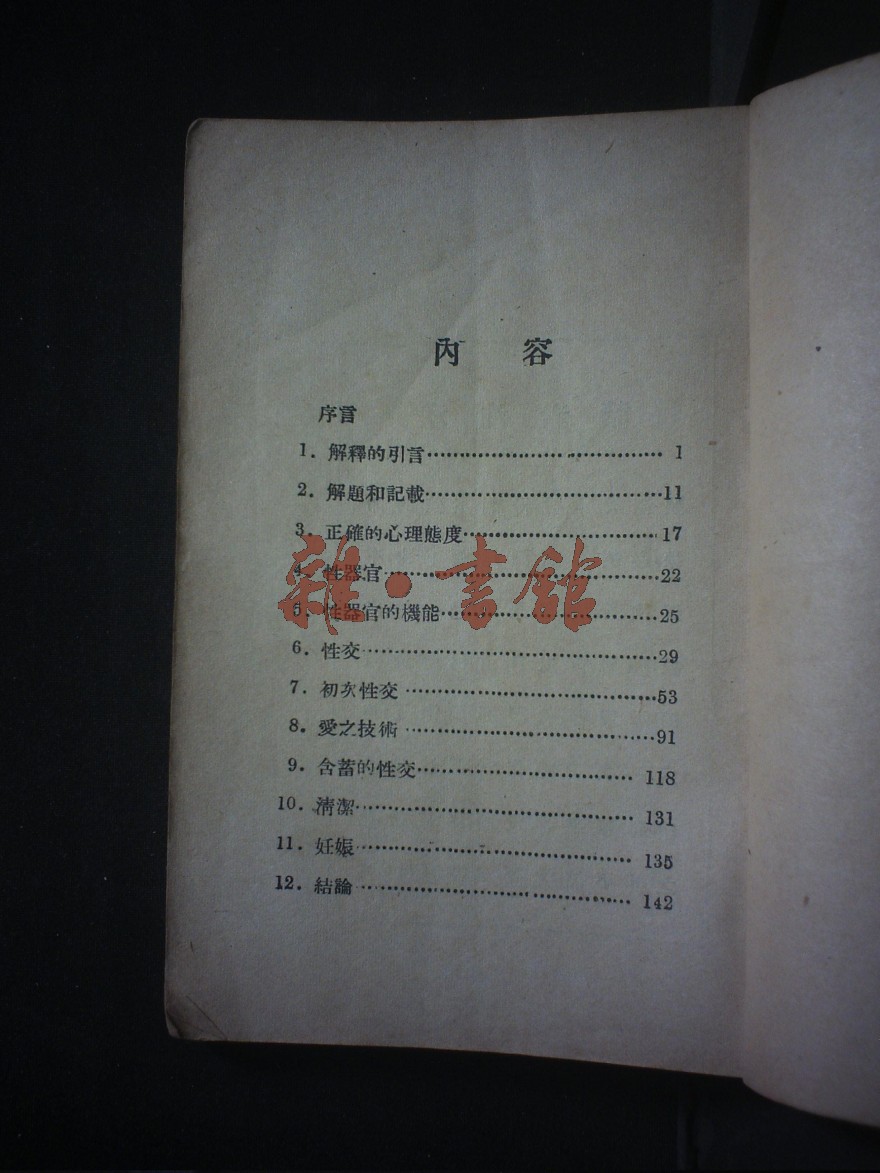 內 容
序言
1. 解釋的引言………………………… 1
2. 解題和記載…………………………11
3. 正確的心理態度……………………17
4. 性器官………………………………22
5. 性器官的機能………………………25
6. 性交…………………………………29
7. 初次性交……………………………53
8. 愛之技術……………………………91
9. 含蓄的性交………………………… 118
10. 清潔………………………………… 131
11. 妊娠………………………………… 135
12. 結論………………………………… 142
雜·書館